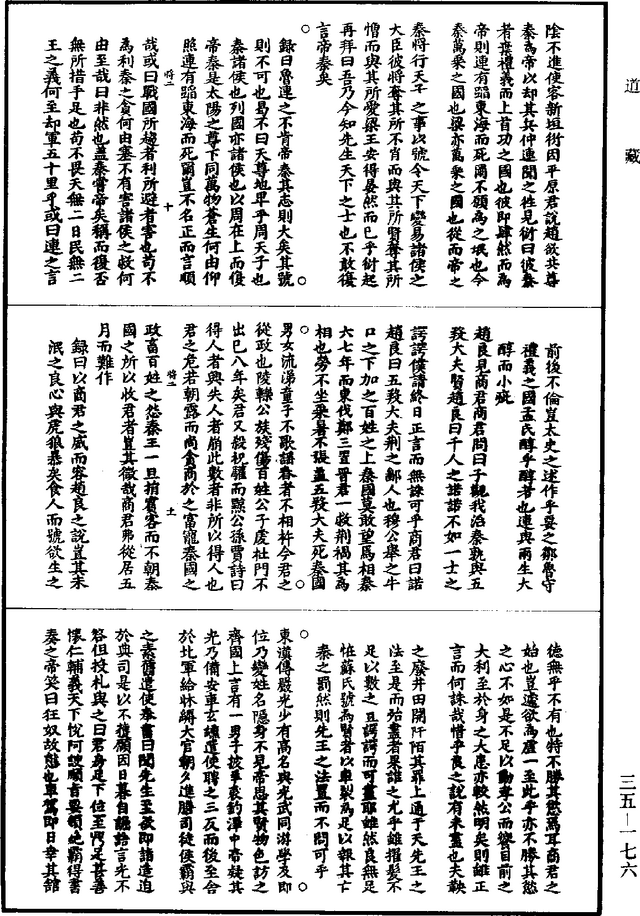 道藏
陰不進使客新垣衍因平原君說趙欲共尊
秦為帝以却其兵仲連聞之往見衍曰彼秦
者棄禮義而上首功之國也彼即肆然而為
帝則連有蹈東海而死爾不願為之氓也今
秦萬乘之國也梁亦萬乘之國也從而帝之
秦將行天子之事以號令天下變易諸侯之
大臣彼將奪其所不肖而與其所賢奪其所
憎而與其所愛梁王安得晏然而已乎衍起
再拜曰吾乃今知先生天下之士也不敢復
言帝秦矣
錄曰魯連之不肯帝秦其志則大矣其號
則不可也易不曰天尊地卑乎周天子也
秦諸侯也列國亦諸侯也以周在上而復
帝秦是太陽之尊下同萬物蒼生何由仰
照連有蹈東海而死爾豈不名正而言順
將二 十
哉或曰戰國所趨者利所避者害也苟不
為利秦之貪何由塞不有害諸侯之救何
由至哉曰非然也蓋秦嘗帝矣稱而復否
無所措手足也苟不畏天無二日民無二
王之義何至却軍五十里乎或曰連之言
前後不倫豈太史之述作乎嬰之鄒魯守
禮義之國孟氏醇乎醇者也連與兩生大
醇而小疵
趙良見商君商君問曰子觀我治秦孰與五
羖大夫賢趙良曰千人之諾諾不如一士之
諤諤僕請終日正言而無誅可乎商君曰諾
趙良曰五羖大夫荆之鄙人也穆公舉之牛
口之下加之百姓之上秦國莫敢望焉相秦
六七年而東伐鄭三置晉君一救荆禍其為
相也勞不坐乘暑不張蓋五羖大夫死秦國
男女流涕童子不歌謠舂者不相杵今君之
從政也陵轢公族殘傷百姓公子虔杜門不
出已八年矣君又殺祝懽而黥公孫賈詩曰
得人者興失人者崩此數者非所以得人也
君之危若朝露而尚貪商於之富寵秦國之
將二 十一
政畜百姓之怨秦王一旦捐賓客而不朝秦
國之所以收君者豈其微哉商君弗從居五
月而難作
錄曰以商君之威而容趙良之說豈其未
泯之良心與虎狼暴矣食人而號欲生之
德無乎不有也特不勝其慾焉耳商君之
始也豈遽欲為虐一至此乎亦不勝其慾
之心不如是不足以動孝公而察目前之
大利至於身之大患亦較然明矣則雖正
言而何誅哉惜乎良之說有未盡也夫鞅
之廢井田開阡陌其罪上通于天先王之
法至是而殆盡者果誰之尤乎雖擢髮不
足以數之且諤諤而可盡耶雖然良無足
怪蘇氏號為賢者以車裂為足以報其亡
秦之罰然則先王之法置而不問可乎
東漢傳嚴光少有高名與光武同游學及即
位乃變姓名隱身不見帝思其賢物色訪之
齊國上言有一男子披羊裘釣澤中帝疑其
光乃備安車玄纁遣使聘之三反而後至舍
於北軍給牀縟大官朝夕進膳司徒侯霸與
之素舊遣使奉書曰聞先生至欲即詣造迫
於典司是以不獲願因日暮自屈語言光不
答但投札與之曰君房足下位至鼎足甚善
懷仁輔義天下悅阿諛順旨要領絕霸得書
奏之帝笑曰狂奴故態也車駕即日幸其館
三五—一七六